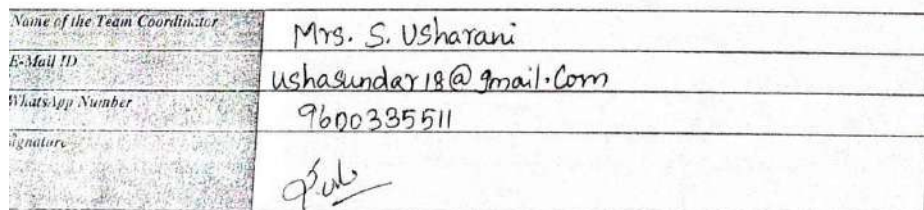 Name of the Team Coordinator
Mrs. S. Usharani
E-Mail ID
ushasundar18@gmail.com
WhatsApp Number
9600335511
Signature